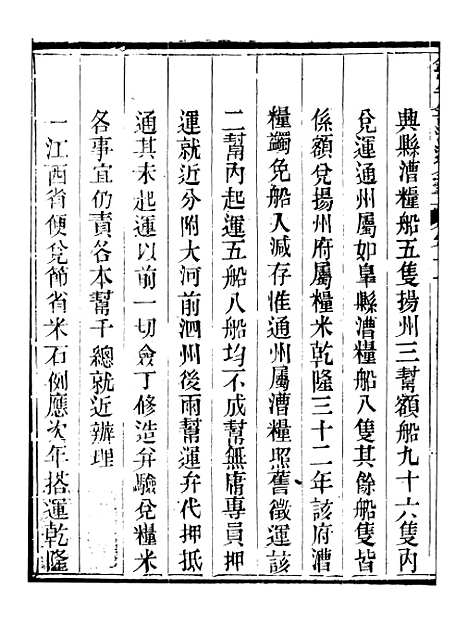 興縣漕糧船五隻揚州三幫額船九十六隻內
兌運通州屬如臯縣漕糧船八隻其餘船隻皆
係額兌揚州府屬糧米乾隆三十二年該府漕
糧蠲免船入減存惟通州屬漕糧照舊徵運該
二幫內起運五船八船均不成幫無庸專員押
運就近分附大河前泗州後兩幫運弁代押抵
通其未起運以前一切僉丁修造弁驗兌糧米
各事宜仍責各本幫千總就近辦理
一江西省便兌節省米石例應次年搭運乾隆